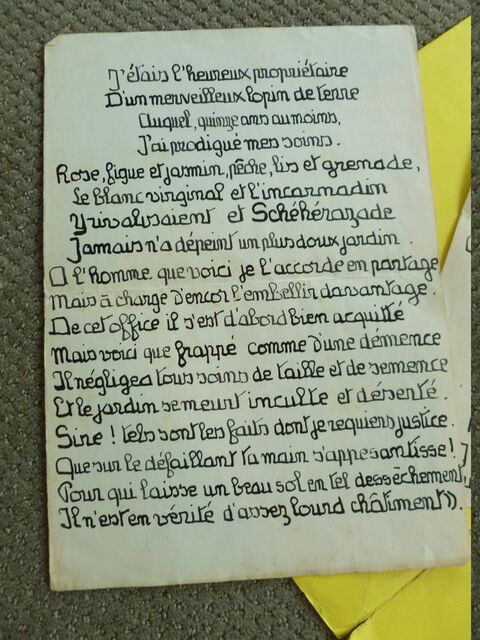 J'étais l'heureux propriétaire
D'un merveilleux lopin de terre
Auquel, quinze ans au moins,
J'ai prodigué mes soins.
Rose, figue et jasmin, pêche, lis et grenade,
Le blanc virginal et l'incarnadin
Y rivalisaient et Schéhérazade
Jamais n'a dépeint un plus doux jardin.
O l'homme que voici je l'accorde en partage
Mais à charge d'encor l'embellir davantage.
De cet office il s'est d'abord bien acquitté
Mais voici que frappé comme d'une démence
Il négligea tous soins de taille et de semence
Et le jardin se meurt inculte et déserté.
Sire ! tels sont les faits dont je requiers justice.
Que sur le défaillant ta main s'appesantisse !
Pour qui laisse un beau sol en tel dessèchement,
Il n'est en vérité d'assez lourd châtiment ».